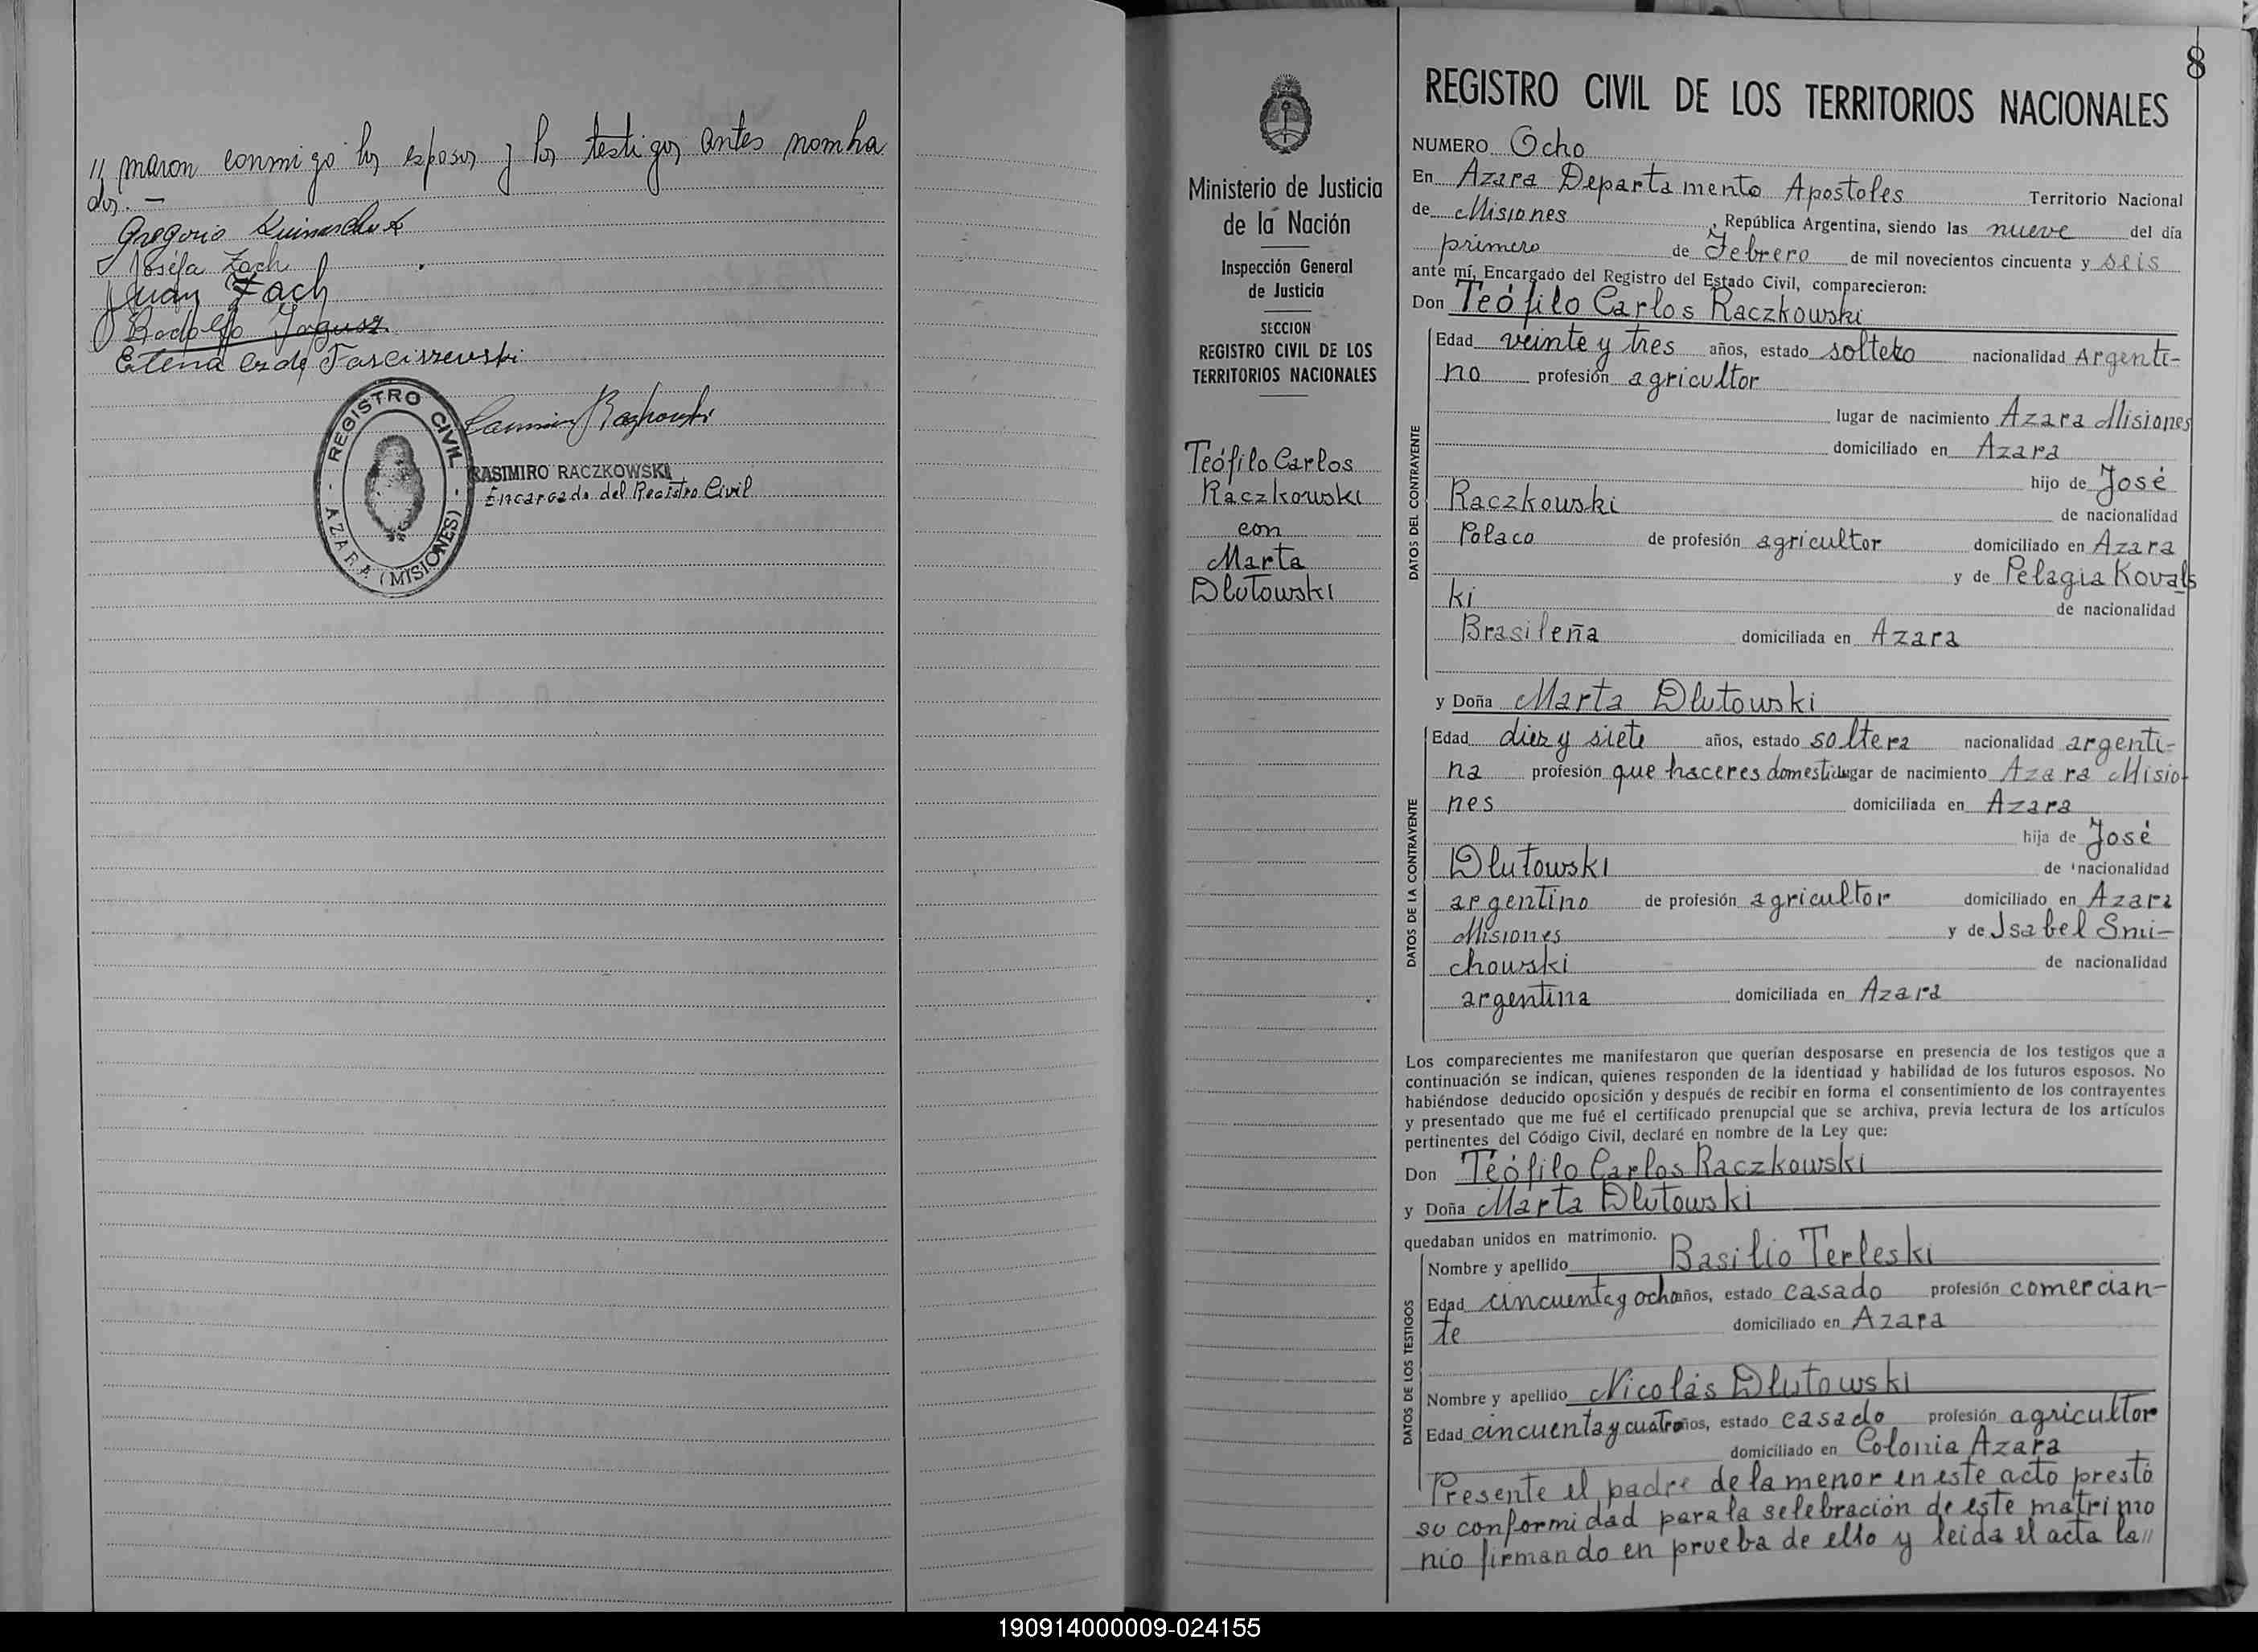 // maron conmigo los esposos y los testigos antes nombra
dos. —
Gregorio
Josefa Zach
Juan Zach
Rodolfo Jagusz
Elena
REGISTRO CIVIL
- AZARA (MISIONES) -
CASIMIRO RACZKOWSKI
Encargado del Registro Civil
8
Ministerio de Justicia
de la Nación
Inspección General
de Justicia
SECCION
REGISTRO CIVIL DE LOS
TERRITORIOS NACIONALES
Teófilo Carlos
Raczkowski
con
Marta
Dlutowski
REGISTRO CIVIL DE LOS TERRITORIOS NACIONALES
NUMERO Ocho
En Azara Departamento Apostoles Territorio Nacional
de Misiones, República Argentina, siendo las nueve del día
primero de Febrero de mil novecientos cincuenta y seis
ante mí, Encargado del Registro del Estado Civil, comparecieron:
Don Teófilo Carlos Raczkowski
DATOS DEL CONTRAYENTE
Edad veinte y tres años, estado soltero nacionalidad Argenti-
no profesión agricultor
lugar de nacimiento Azara Misiones
domiciliado en Azara
hijo de José
Raczkowski de nacionalidad
Polaco de profesión agricultor domiciliado en Azara
y de Pelagia Kovals
ki de nacionalidad
Brasileña domiciliada en Azara
y Doña Marta Dlutowski
DATOS DE LA CONTRAYENTE
Edad diez y siete años, estado soltera nacionalidad argenti-
na profesión que haceres domesti lugar de nacimiento Azara Misio-
nes domiciliada en Azara
hija de José
Dlutowski de nacionalidad
argentino de profesión agricultor domiciliado en Azara
Misiones y de Isabel Smi-
chowski de nacionalidad
argentina domiciliada en Azara
Los comparecientes me manifestaron que querían desposarse en presencia de los testigos que a
continuación se indican, quienes responden de la identidad y habilidad de los futuros esposos. No
habiéndose deducido oposición y después de recibir en forma el consentimiento de los contrayentes
y presentado que me fué el certificado prenupcial que se archiva, previa lectura de los artículos
pertinentes del Código Civil, declaré en nombre de la Ley que:
Don Teófilo Carlos Raczkowski
y Doña Marta Dlutowski
quedaban unidos en matrimonio.
DATOS DE LOS TESTIGOS
Nombre y apellido Basilio Terleski
Edad cincuenta y ocho años, estado casado profesión comercian-
te domiciliado en Azara
Nombre y apellido Nicolás Dlutowski
Edad cincuenta y cuatro años, estado casado profesión agricultor
domiciliado en Colonia Azara
Presente el padre de la menor en este acto prestó
su conformidad para la selebración de este matrimo
nio firmando en prueba de ello y leida el acta la //
190914000009-024155